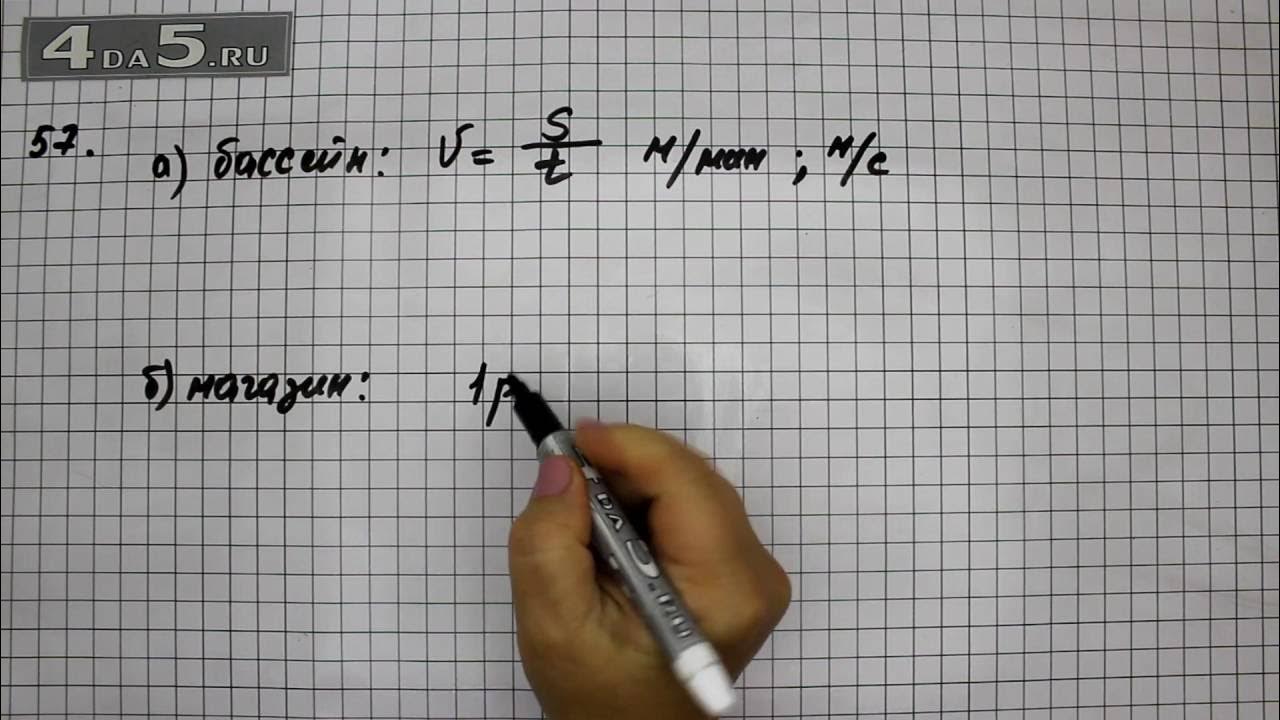 4DA5.RU
57. а) бассейн: V = S/t м/мин ; м/с
б) магазин: 1 р
4 DA 5.RU